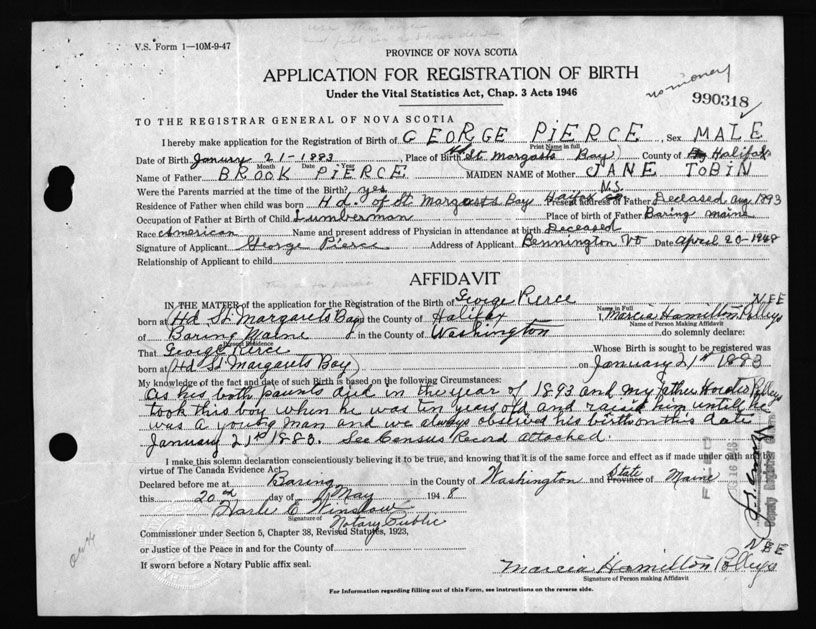 V.S. Form 1—10M-9-47
PROVINCE OF NOVA SCOTIA
APPLICATION FOR REGISTRATION OF BIRTH
Under the Vital Statistics Act, Chap. 3 Acts 1946
no money
990318
TO THE REGISTRAR GENERAL OF NOVA SCOTIA
I hereby make application for the Registration of Birth of GEORGE PIERCE, Sex MALE
Print Name in full
Date of Birth Janury 21-1883, Place of Birth Hd St. Margasts Bay) County of Halifax
Month Date Year
Name of Father BROOK PIERCE MAIDEN NAME of Mother JANE TOBIN
Were the Parents married at the time of Birth? yes N.S.
Residence of Father when child was born Hd. of St. Margasts Bay Present address of Father Deceased aug. 1893
Occupation of Father at Birth of Child Lumberman Place of birth of Father Baring Maine
Race American Name and present address of Physician in attendance at birth Deceased
Signature of Applicant George Pierce Address of Applicant Bennington Vt Date April 20-1948
Relationship of Applicant to child
AFFIDAVIT
IN THE MATTER of the application for the Registration of the Birth of George Pierce
Name in Full
NEE
born at Hd St. Margarets Bay in the County of Halifax I, Marcia Hamilton Polleys
Name of Person Making Affidavit
of Baring Maine, in the County of Washington do solemnly declare:
Present Residence
That George Pierce Whose Birth is sought to be registered was
born at (Hd St. Margarets Bay) on January 21st 1883
My knowledge of the fact and date of such Birth is based on the following Circumstances:
As his both paunts died in the year of 1893 and my father Horatio Polleys
took this boy when he was ten years old and raised him until he
was a young man and we always observed his birth on this date
January 21st 1883. See Census Record attached.
I make this solemn declaration conscientiously believing it to be true, and knowing that it is of the same force and effect as if made under oath and by
virtue of The Canada Evidence Act.
Declared before me at Baring in the County of Washington and State Province of Maine
this 20nd day of May 1948
Harle E Winslow
Signature of
Notary Public
Commissioner under Section 5, Chapter 38, Revised Statutes, 1923,
or Justice of the Peace in and for the County of
If sworn before a Notary Public affix seal.
NEE
Marcia Hamilton Polleys
Signature of Person making Affidavit
For Information regarding filling out of this Form, see instructions on the reverse side.
FILED
Deputy Registrar